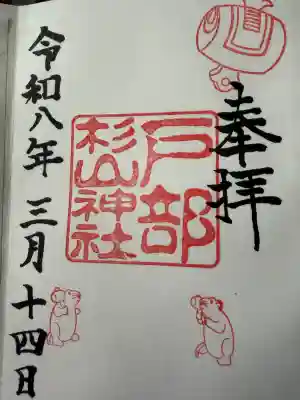 奉拝
戸部
杉山神社
令和八年 三月 十四日